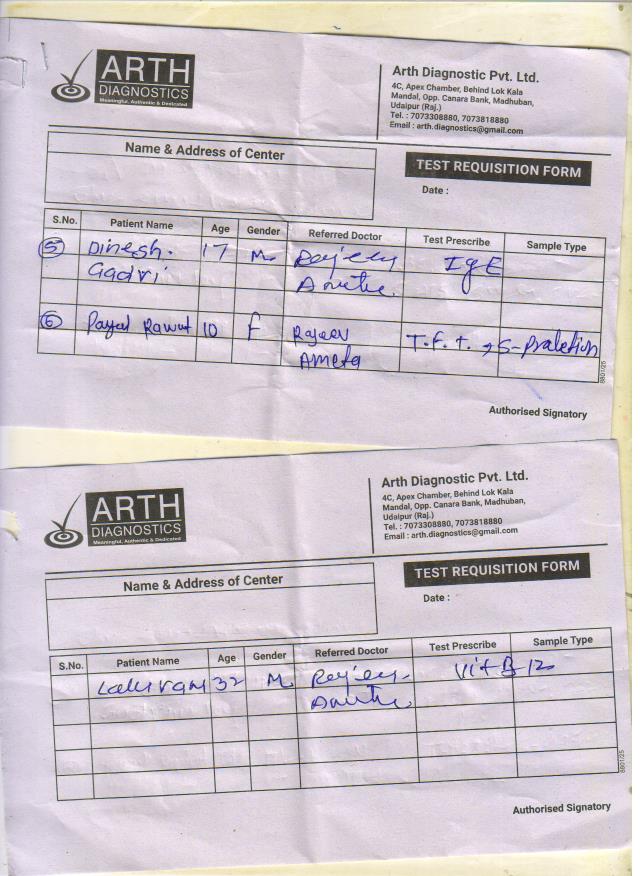 ARTH
DIAGNOSTICS
Meaningful, Authentic & Dedicated
Arth Diagnostic Pvt. Ltd.
4C, Apex Chamber, Behind Lok Kala
Mandal, Opp. Canara Bank, Madhuban,
Udaipur (Raj.)
Tel. : 7073308880, 7073818880
Email : arth.diagnostics@gmail.com
Name & Address of Center
TEST REQUISITION FORM
Date :
S.No. Patient Name Age Gender Referred Doctor Test Prescribe Sample Type
5 Dinesh. 17 M Rajeev IgE
Gadri
6 Payal Rawat 10 F Rajeev T.F.T. , S-Prolaction
Ameta
8801/25
Authorised Signatory
ARTH
DIAGNOSTICS
Meaningful, Authentic & Dedicated
Arth Diagnostic Pvt. Ltd.
4C, Apex Chamber, Behind Lok Kala
Mandal, Opp. Canara Bank, Madhuban,
Udaipur (Raj.)
Tel. : 7073308880, 7073818880
Email : arth.diagnostics@gmail.com
Name & Address of Center
TEST REQUISITION FORM
Date :
S.No. Patient Name Age Gender Referred Doctor Test Prescribe Sample Type
32 M Rajeev Vit B 12
8801/25
Authorised Signatory